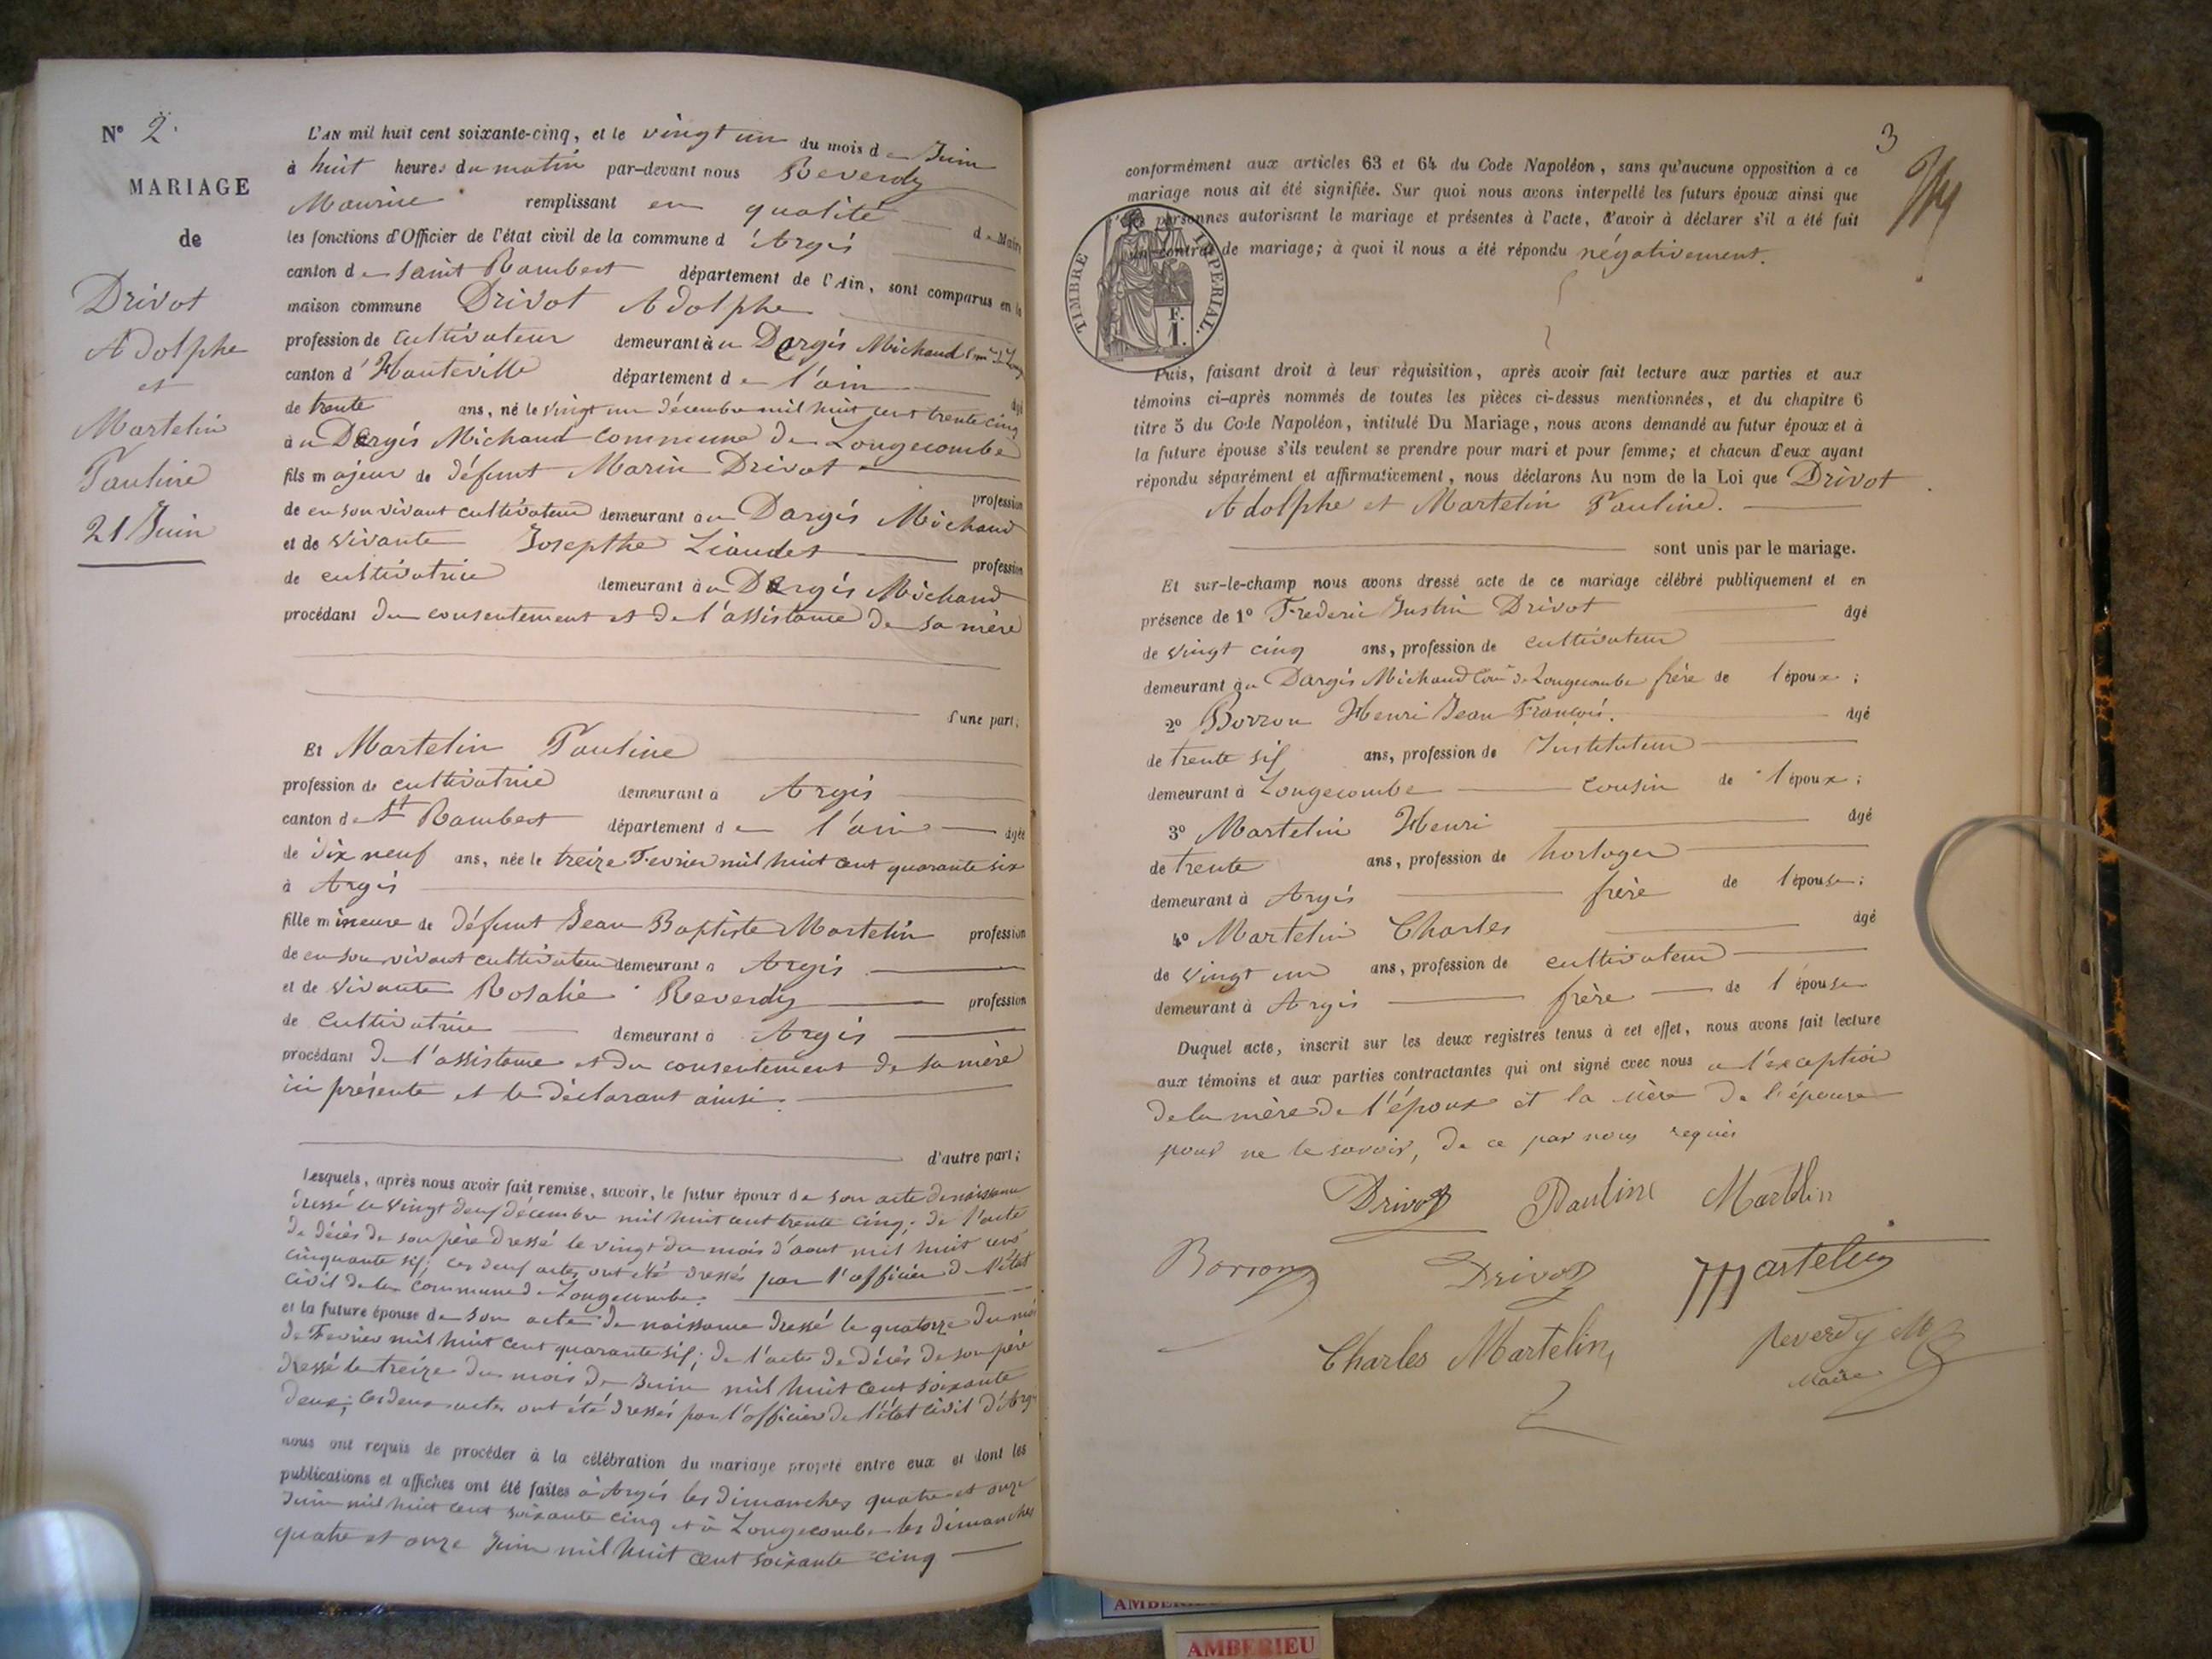 N° 2.
MARIAGE
de
Drivot
Adolphe
et
Martelin
Pauline
21 Juin
L'AN mil huit cent soixante-cinq, et le vingt un du mois de Juin
à huit heures du matin par-devant nous Reverdy
Maurice remplissant en qualité de Maire
les fonctions d'Officier de l'état civil de la commune d'Argis
canton de saint Rambert département de l'Ain, sont comparus en la
maison commune Drivot Adolphe
profession de cultivateur demeurant à u Dergis Michaud
canton d'Hauteville département de l'ain âgé
de trente ans, né le vingt un décembre mil huit cent trente cinq
à u Dergis Michaud commune de Longecombe
fils majeur de défunt Marin Drivot profession
de en son vivant cultivateur demeurant au Dargis Michaud
et de vivante Josepthe Liaudet profession
de cultivatrice demeurant à u Dergis Michaud
procédant du consentement et de l'assistance de sa mère
d'une part;
Et Martelin Pauline
profession de cultivatrice demeurant à Argis
canton de St Rambert département de l'ain âgée
de dix neuf ans, née le treize Fevrier mil huit cent quarante six
à Argis
fille mineure de défunt Jean Baptiste Martelin profession
de en son vivant cultivateur demeurant à Argis
et de vivante Rosalie Reverdy profession
de cultivatrice demeurant à Argis
procédant de l'assistance et du consentement de sa mère
ici présente et le déclarant ainsi.
d'autre part;
Lesquels, après nous avoir fait remise, savoir, le futur époux de son acte de naissance
dressé le vingt deux décembre mil huit cent trente cinq; de l'acte
de décès de son père dressé le vingt du mois d'aout mil huit cent
cinquante six; ces deux actes ont été dressés par l'officier de l'état
civil de la commune de Longecombe.
et la future épouse de son acte de naissance dressé le quatorze du mois
de Fevrier mil huit cent quarante six; de l'acte de décès de son père
dressé le treize du mois de Juin mil huit cent soixante
deux; ces deux actes ont été dressés par l'officier de l'état civil d'Argis
nous ont requis de procéder à la célébration du mariage projeté entre eux et dont les
publications et affiches ont été faites à Argis les dimanches quatre et onze
Juin mil huit cent soixante cinq et à Longecombe les dimanches
quatre et onze Juin mil huit cent soixante cinq
3
conformément aux articles 63 et 64 du Code Napoléon, sans qu'aucune opposition à ce
mariage nous ait été signifiée. Sur quoi nous avons interpellé les futurs époux ainsi que
les personnes autorisant le mariage et présentes à l'acte, d'avoir à déclarer s'il a été fait
un contrat de mariage; à quoi il nous a été répondu négativement.
TIMBRE IMPERIAL.
F.
1.
Puis, faisant droit à leur réquisition, après avoir fait lecture aux parties et aux
témoins ci-après nommés de toutes les pièces ci-dessus mentionnées, et du chapitre 6
titre 5 du Code Napoléon, intitulé Du Mariage, nous avons demandé au futur époux et à
la future épouse s'ils veulent se prendre pour mari et pour femme; et chacun d'eux ayant
répondu séparément et affirmativement, nous déclarons Au nom de la Loi que Drivot
Adolphe et Martelin Pauline.
sont unis par le mariage.
Et sur-le-champ nous avons dressé acte de ce mariage célébré publiquement et en
présence de 1° Frederic Justin Drivot âgé
de vingt cinq ans, profession de cultivateur
demeurant au Dargis Michaud Com. de Longecombe frère de l'époux;
2° Borron Henri Jean François. âgé
de trente six ans, profession de Instituteur
demeurant à Longecombe cousin de l'époux;
3° Martelin Henri âgé
de trente ans, profession de horloger
demeurant à Argis frère de l'épouse;
4° Martelin Charles âgé
de vingt un ans, profession de cultivateur
demeurant à Argis frère de l'épouse
Duquel acte, inscrit sur les deux registres tenus à cet effet, nous avons fait lecture
aux témoins et aux parties contractantes qui ont signé avec nous a l'exception
de la mère de l'époux et la mère de l'épouse
pour ne le savoir, de ce par nous requis
Drivot Pauline Martelin
Borron Drivot Martelin
Charles Martelin Reverdy M
Maire
AMBERIEU